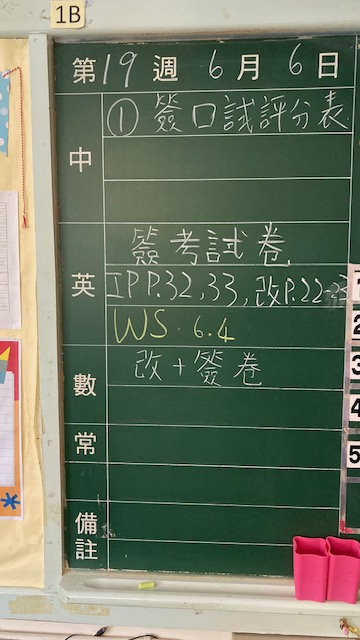 1B
第19週6月6日
中 ① 簽口試評分表
簽考試卷
英 IP P.32, 33, 改P.22-23
WS. 6.4
數 改+簽卷
常
備註
1
2
3
4
5